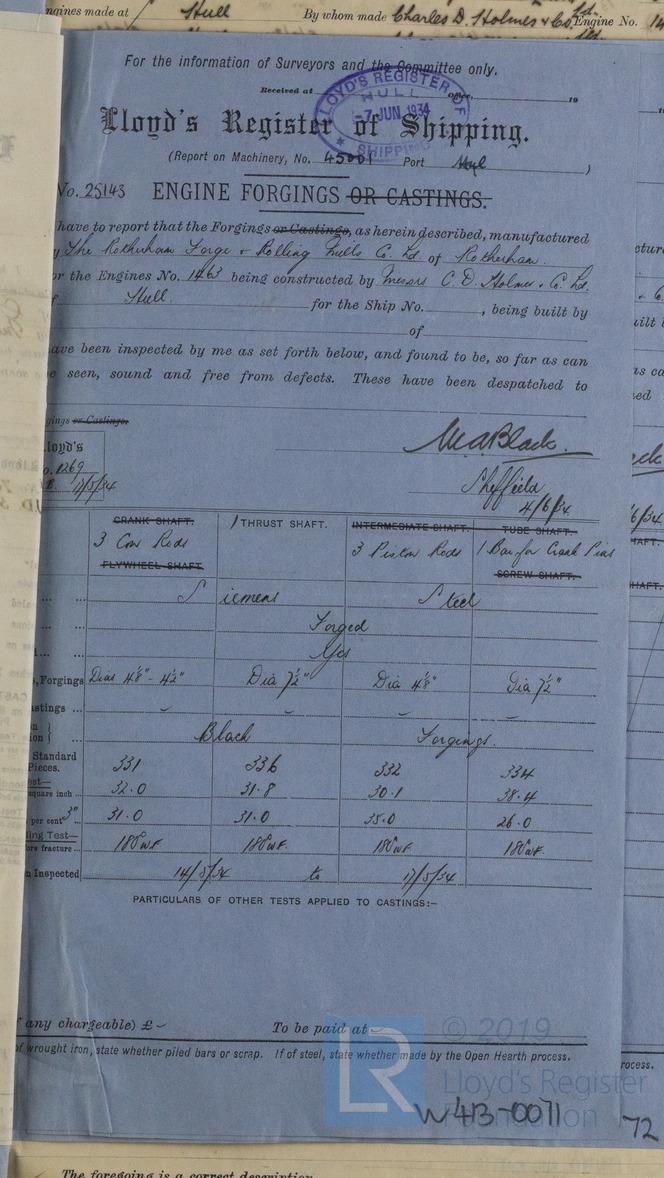 ngines made at Hull By whom made Charles D. Holmes & Co Ltd. Engine No. 14
For the information of Surveyors and the Committee only.
Received at Office, 19
LLOYD'S REGISTER OF
HULL
-7 JUN 1934
SHIPPING
Lloyd's Register of Shipping.
(Report on Machinery, No. 45001 Port Hul )
No. 25143 ENGINE FORGINGS OR CASTINGS.
have to report that the Forgings or Castings, as herein described, manufactured
y The Rotherham Forge & Rolling Mills Co. Ltd of Rotherham.
or the Engines No. 1463 being constructed by Messrs C. D. Holmes & Co. Ltd.
f Hull. for the Ship No. , being built by
of
ave been inspected by me as set forth below, and found to be, so far as can
e seen, sound and free from defects. These have been despatched to
gings or Castings.
loyd's
o. 1269
17/5/34
W.A. Black.
Sheffield
4/6/34
CRANK SHAFT. 1 THRUST SHAFT. INTERMEDIATE SHAFT. TUBE SHAFT.
3 Con Rods 3 Piston Rods 1 Bar for Crank Pins
FLYWHEEL SHAFT SCREW SHAFT.
... ... Siemens Steel
... ... Forged
... ... Yes
, Forgings Dias 4⅛" - 4½" Dia 7½" Dia 4⅛" Dia 7½"
astings ... - - - -
n
ion } ... Black Forgings.
Standard
Pieces. 331 336 332 334
est—
square inch .. 32.0 31.8 30.1 38.4
per cent 3" 31.0 31.0 35.0 26.0
ling Test—
ore fracture .. 180° u.f. 180° u.f. 180° u.f. 180° u.f.
n Inspected 14/5/34 to 17/5/34
PARTICULARS OF OTHER TESTS APPLIED TO CASTINGS:–
f any chargeable) £ - To be paid at -
of wrought iron, state whether piled bars or scrap. If of steel, state whether made by the Open Hearth process.
rocess.
LR © 2019
Lloyd's Register
Foundation
W413-0071
72
The foregoing is a correct description